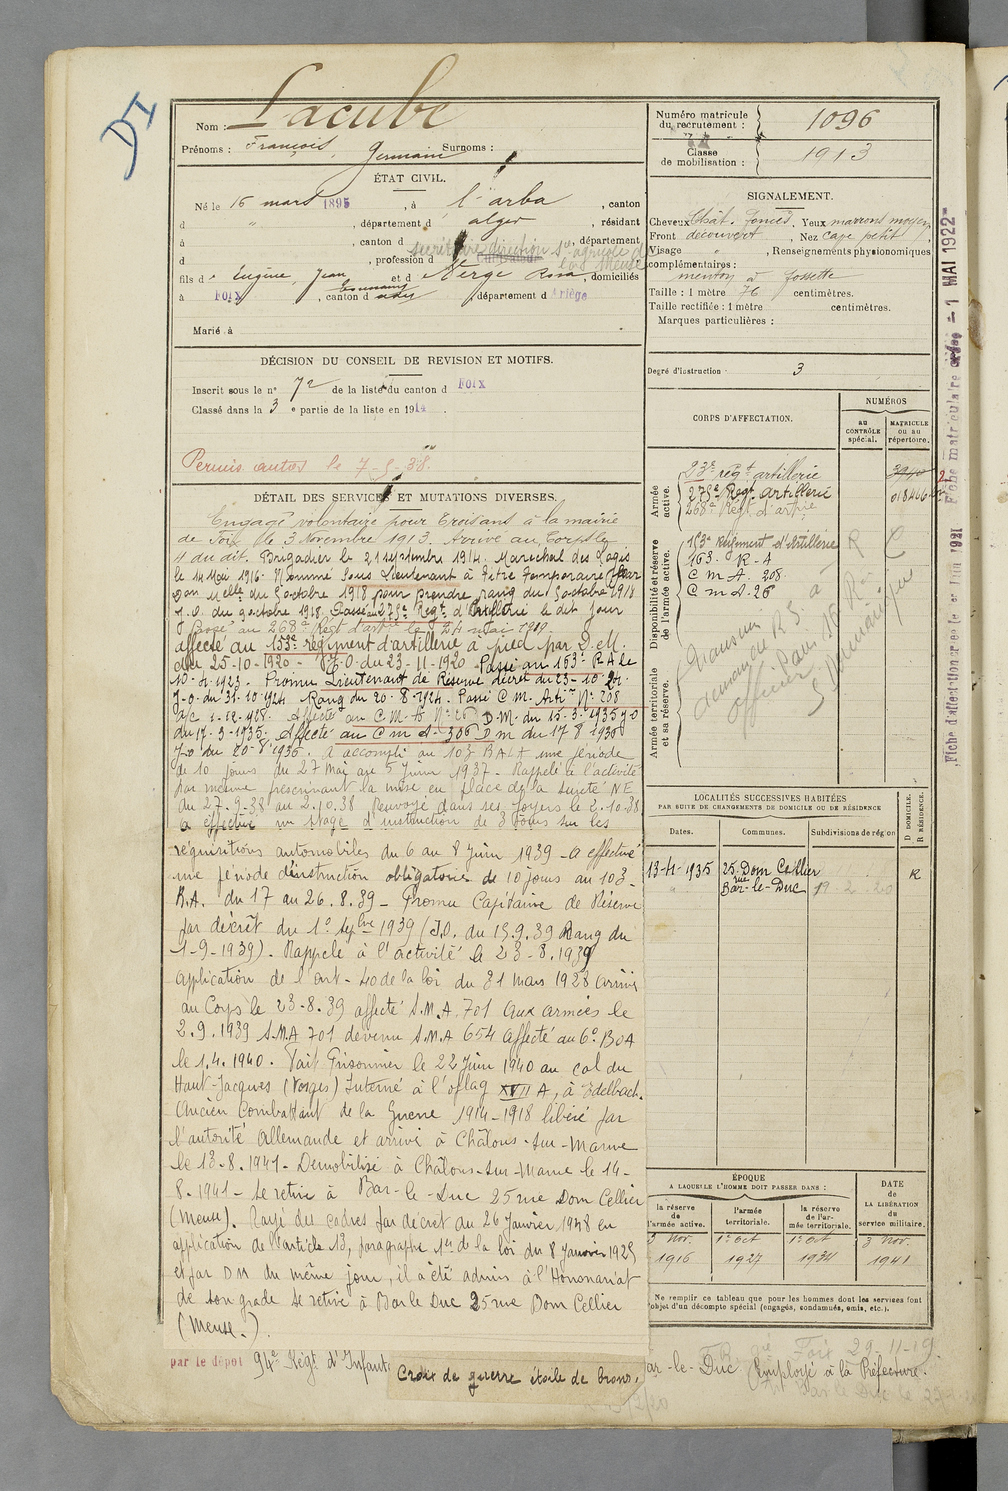 DI
Nom : Lacube
Prénoms : François, Germain Surnoms :
ÉTAT CIVIL.
Né le 16 mars 1895, à l'arba, canton
d ", département d' alger, résidant
à , canton d , département
d , profession d secrétaire direction Sces agricole
fils d' Eugène, Jean et d Verge Rosa, domiciliés
à Foix, canton d , département d Ariège
Marié à
DÉCISION DU CONSEIL DE REVISION ET MOTIFS.
Inscrit sous le n° 72 de la liste du canton d Foix
Classé dans la 3e partie de la liste en 1914.
Permis autos le 7-5-38.
DÉTAIL DES SERVICES ET MUTATIONS DIVERSES.
Engagé volontaire pour trois ans à la mairie
de Foix le 3 Novembre 1913. Arrivé au Corps le
4 du dit. Brigadier le 21 septembre 1914. Marechal des Logis
le 14 Mai 1916. Nommé Sous Lieutenant à titre temporaire (par
Don Melle du 5 octobre 1918 pour prendre rang du 5 octobre 1918
J.O. du 9 octobre 1918. Passé au 275e Regt d'Artillerie le dit jour
Passé au 268e Regt d'artie le 24 mai 1919.
affecté au 153e régiment d'artillerie à pied par D.M.
du 25-10-1920 - J.O. du 23-11-1920 Passé au 153e R.A le
10-4-1923. Promu Lieutenant de Réserve décret du 23-10-24.
J.O. du 31-10-1924 Rang du 20-8-1924. Passé C.M. Artie N° 208
a/c 1-12-1928. Affecté au C.M.A N° 26 D.M. du 15-3-1935 J.O
du 17-3-1935. Affecté au C.M.A. 306 D.M. du 17 8 1936
J.O du 20-8-1936. A accompli au 103 RALT une période
de 10 jours du 27 Mai au 5 Juin 1937. Rappelé à l'activité
par mesure prescrivant la mise en place de la sureté N.E.
du 27-9-38 au 2.10.38 Renvoyé dans ses foyers le 2.10.38
a effectué un stage d'instruction de 3 jours sur les
réquisitions automobiles du 6 au 8 Juin 1939 - a effectué
une période d'instruction obligatoire de 10 jours au 103
R.A. du 17 au 26.8.39 - Promu Capitaine de Réserve
par décret du 1er Septbre 1939 (J.O. du 15.9.39 Rang du
1-9-1939). Rappelé à l'activité le 23-8-1939
application de l'art. 40 de la loi du 31 mars 1928 arrivé
au Corps le 23-8-39 affecté S.M.A 701 aux armées le
2.9.1939 S.M.A 701 devenu S.M.A 654 affecté au 6e B.O.A
le 1.4.1940. Fait Prisonnier le 22 Juin 1940 au col du
Haut-Jacques (Vosges) Interné à l'oflag XVII A, à Edelbach.
Ancien Combattant de la Guerre 1914-1918 libéré par
l'autorité allemande et arrivé à Châlons-sur-Marne
le 13-8-1941 - Démobilisé à Châlons-sur-Marne le 14-
8-1941 - se retire à Bar-le-Duc 25 rue Dom Cellier
(Meuse). Rayé des cadres par décret du 26 Janvier 1948 en
application de l'article 13, paragraphe 1er de la loi du 8 Janvier 1925
et par DM du même jour, il a été admis à l'Honorariat
de son grade se retire à Bar le Duc 25 rue Dom Cellier
(Meuse.).
par le dépôt 94e Régt d'Infant
Croix de guerre étoile de bronze.
ar-le-Duc employé à la Préfecture.
Foix 29-11-19.
Numéro matricule du recrutement : 1096
Classe de mobilisation : 1913
SIGNALEMENT.
Cheveux Chât. foncés, Yeux marrons moyen,
Front découvert, Nez cave petit,
Visage ", Renseignements physionomiques
complémentaires :
menton à fossette
Taille : 1 mètre 76 centimètres.
Taille rectifiée : 1 mètre centimètres.
Marques particulières :
Degré d'instruction : 3
CORPS D'AFFECTATION.
NUMÉROS
AU CONTRÔLE spécial.
MATRICULE ou au répertoire.
Armée active.
23e regt artillerie 3940
275e Regt Artillerie
268e Regt d'artie
Disponibilité et réserve de l'armée active.
153e Régiment d'Artillerie
163. R.A
C M A. 208
C M A. 26
Armée territoriale et sa réserve.
LOCALITÉS SUCCESSIVES HABITÉES
PAR SUITE DE CHANGEMENTS DE DOMICILE OU DE RÉSIDENCE
Dates.
Communes.
Subdivisions de région
D DOMICILE.
R RÉSIDENCE.
13-4-1935 25 rue Dom Cellier R
Bar-le-Duc 19-2-20
ÉPOQUE
A LAQUELLE L'HOMME DOIT PASSER DANS :
la réserve de l'armée active.
l'armée territoriale.
la réserve de l'armée territoriale.
DATE de LA LIBÉRATION du service militaire.
3 Nov. 1916
1er Oct 1927
1er Oct 1934
3 Nov. 1941
Ne remplir ce tableau que pour les hommes dont les services font
l'objet d'un décompte spécial (engagés, condamnés, omis, etc.).
Fiche d'affectation créée le 1er Juin 1921 Fiche matriculaire créée - 1 MAI 1922 -